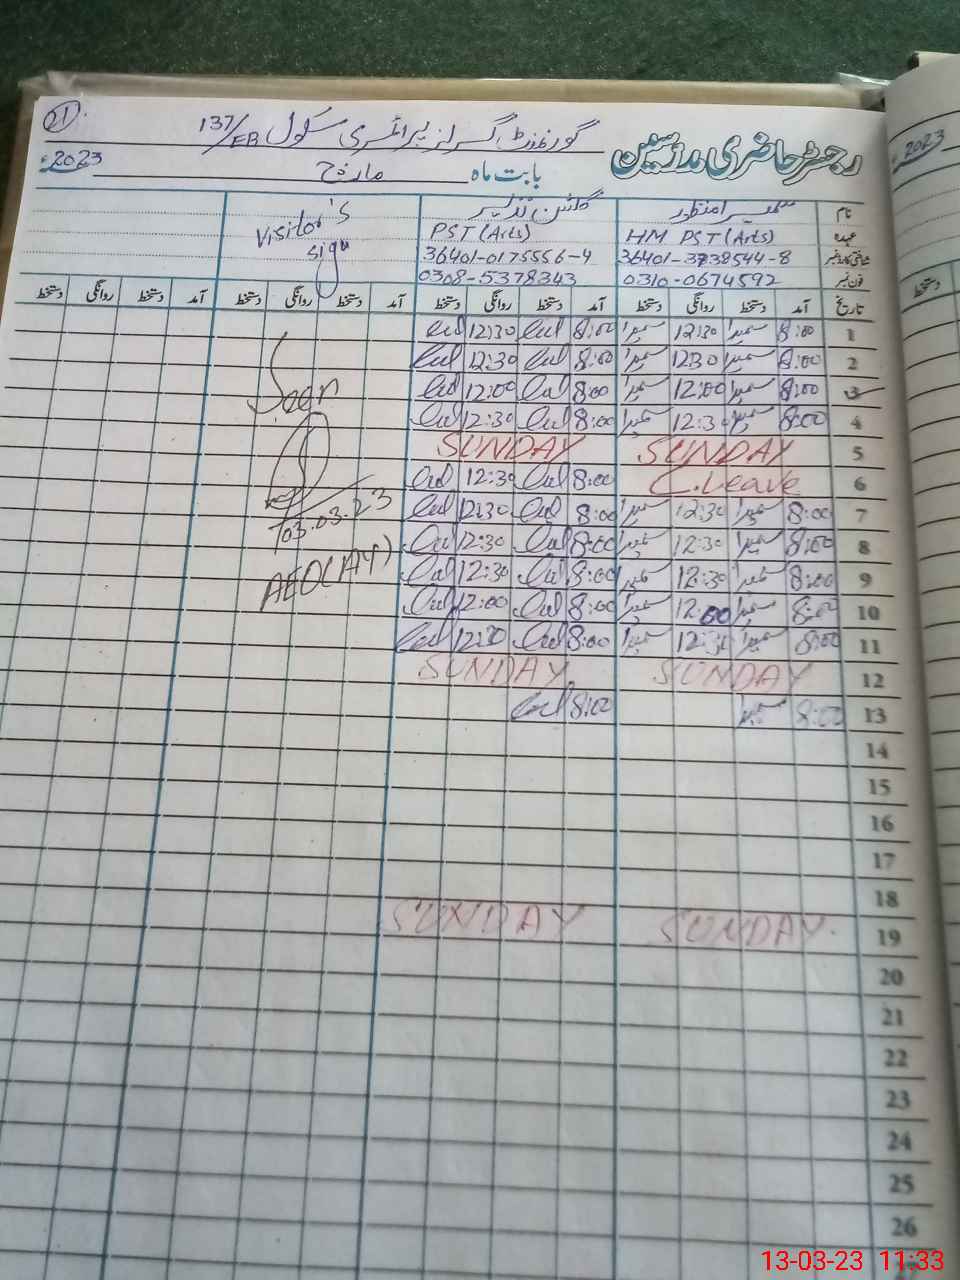 21
گورنمنٹ گرلز پرائمری سکول 137/EB
رجسٹر حاضری مدرسین
بابت ماہ مارچ 2023ء
نام سمیرا منظور گلشن نذیر Visitor's
عہدہ HM PST (Arts) PST (Arts) sign
شناختی کارڈ نمبر 36401-3738544-8 36401-0175556-4
فون نمبر 0310-0674592 0308-5378343
تاریخ آمد دستخط روانگی دستخط آمد دستخط روانگی دستخط آمد دستخط روانگی دستخط آمد دستخط روانگی دستخط
1 8:00 سمیرا 12:30 سمیرا 8:00 12:30
2 8:00 سمیرا 12:30 سمیرا 8:00 12:30
3 8:00 سمیرا 12:00 سمیرا 8:00 12:00 Seen
4 8:00 سمیرا 12:30 سمیرا 8:00 12:30
5 SUNDAY SUNDAY
6 C.Leave 8:00 12:30
7 8:00 سمیرا 12:30 سمیرا 8:00 12:30 03.03.23
8 8:00 سمیرا 12:30 سمیرا 8:00 12:30
9 8:00 سمیرا 12:30 سمیرا 8:00 12:30 AEO(AY)
10 8:00 سمیرا 12:00 سمیرا 8:00 12:00
11 8:00 سمیرا 12:30 سمیرا 8:00 12:30
12 SUNDAY SUNDAY
13 8:00 سمیرا 8:00
14
15
16
17
18
19 SUNDAY SUNDAY
20
21
22
23
24
25
26
2023ء
دستخط
13-03-23 11:33